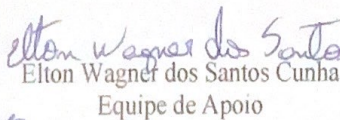 Elton Wagner dos Santos
Elton Wagner dos Santos Cunha
Equipe de Apoio